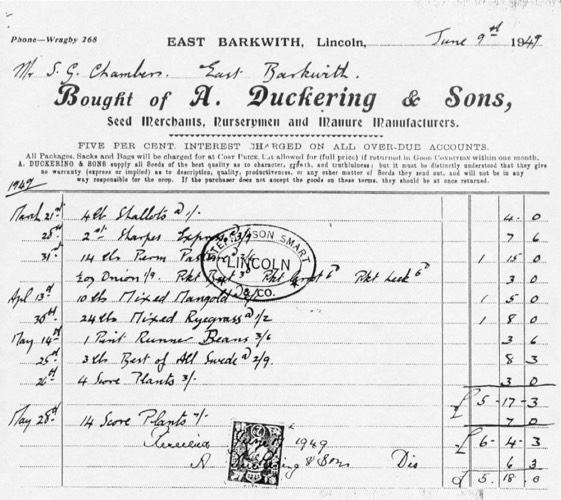 Phone—Wragby 268
EAST BARKWITH, Lincoln, June 9th 1949
Mr S. G. Chambers. East Barkwith.
Bought of A. Duckering & Sons,
Seed Merchants, Nurserymen and Manure Manufacturers.
FIVE PER CENT. INTEREST CHARGED ON ALL OVER-DUE ACCOUNTS.
All Packages, Sacks and Bags will be charged for at COST PRICE, but allowed for (full price) if returned in GOOD CONDITION within one month.
A. DUCKERING & SONS supply all Seeds of the best quality as to character, growth, and truthfulness; but it must be distinctly understood that they give
no warranty (express or implied) as to description, quality, productiveness, or any other matter of Seeds they send out, and will not be in any
way responsible for the crop. If the purchaser does not accept the goods on these terms, they should be at once returned.
1949
March 21st 4 lb Shallots @ 1/- 4 0
28th 2 Sharpes Express @ 3/9 7 6
31st 14 lb Perm Pasture 1 15 0
1 oz Onion 1/9. Pkt Beet Pkt Carrot 6d Pkt Leek 6d 3 0
STEPHENSON SMART
LINCOLN
& CO.
Apl 13th 10 lb Mixed Mangold 1 5 0
30th 24 lb Mixed Ryegrass @ 1/2 1 8 0
May 14th 1 Pint Runner Beans 3/6 3 6
25th 3 lb Best of All Swede @ 2/9. 8 3
26th 4 Score Plants 3/- 3 0
£ 5-17-3
May 28th 14 Score Plants 7 0
£ 6-4-3
Received 1949
A & Sons Dis 6 3
£ 5 18 0